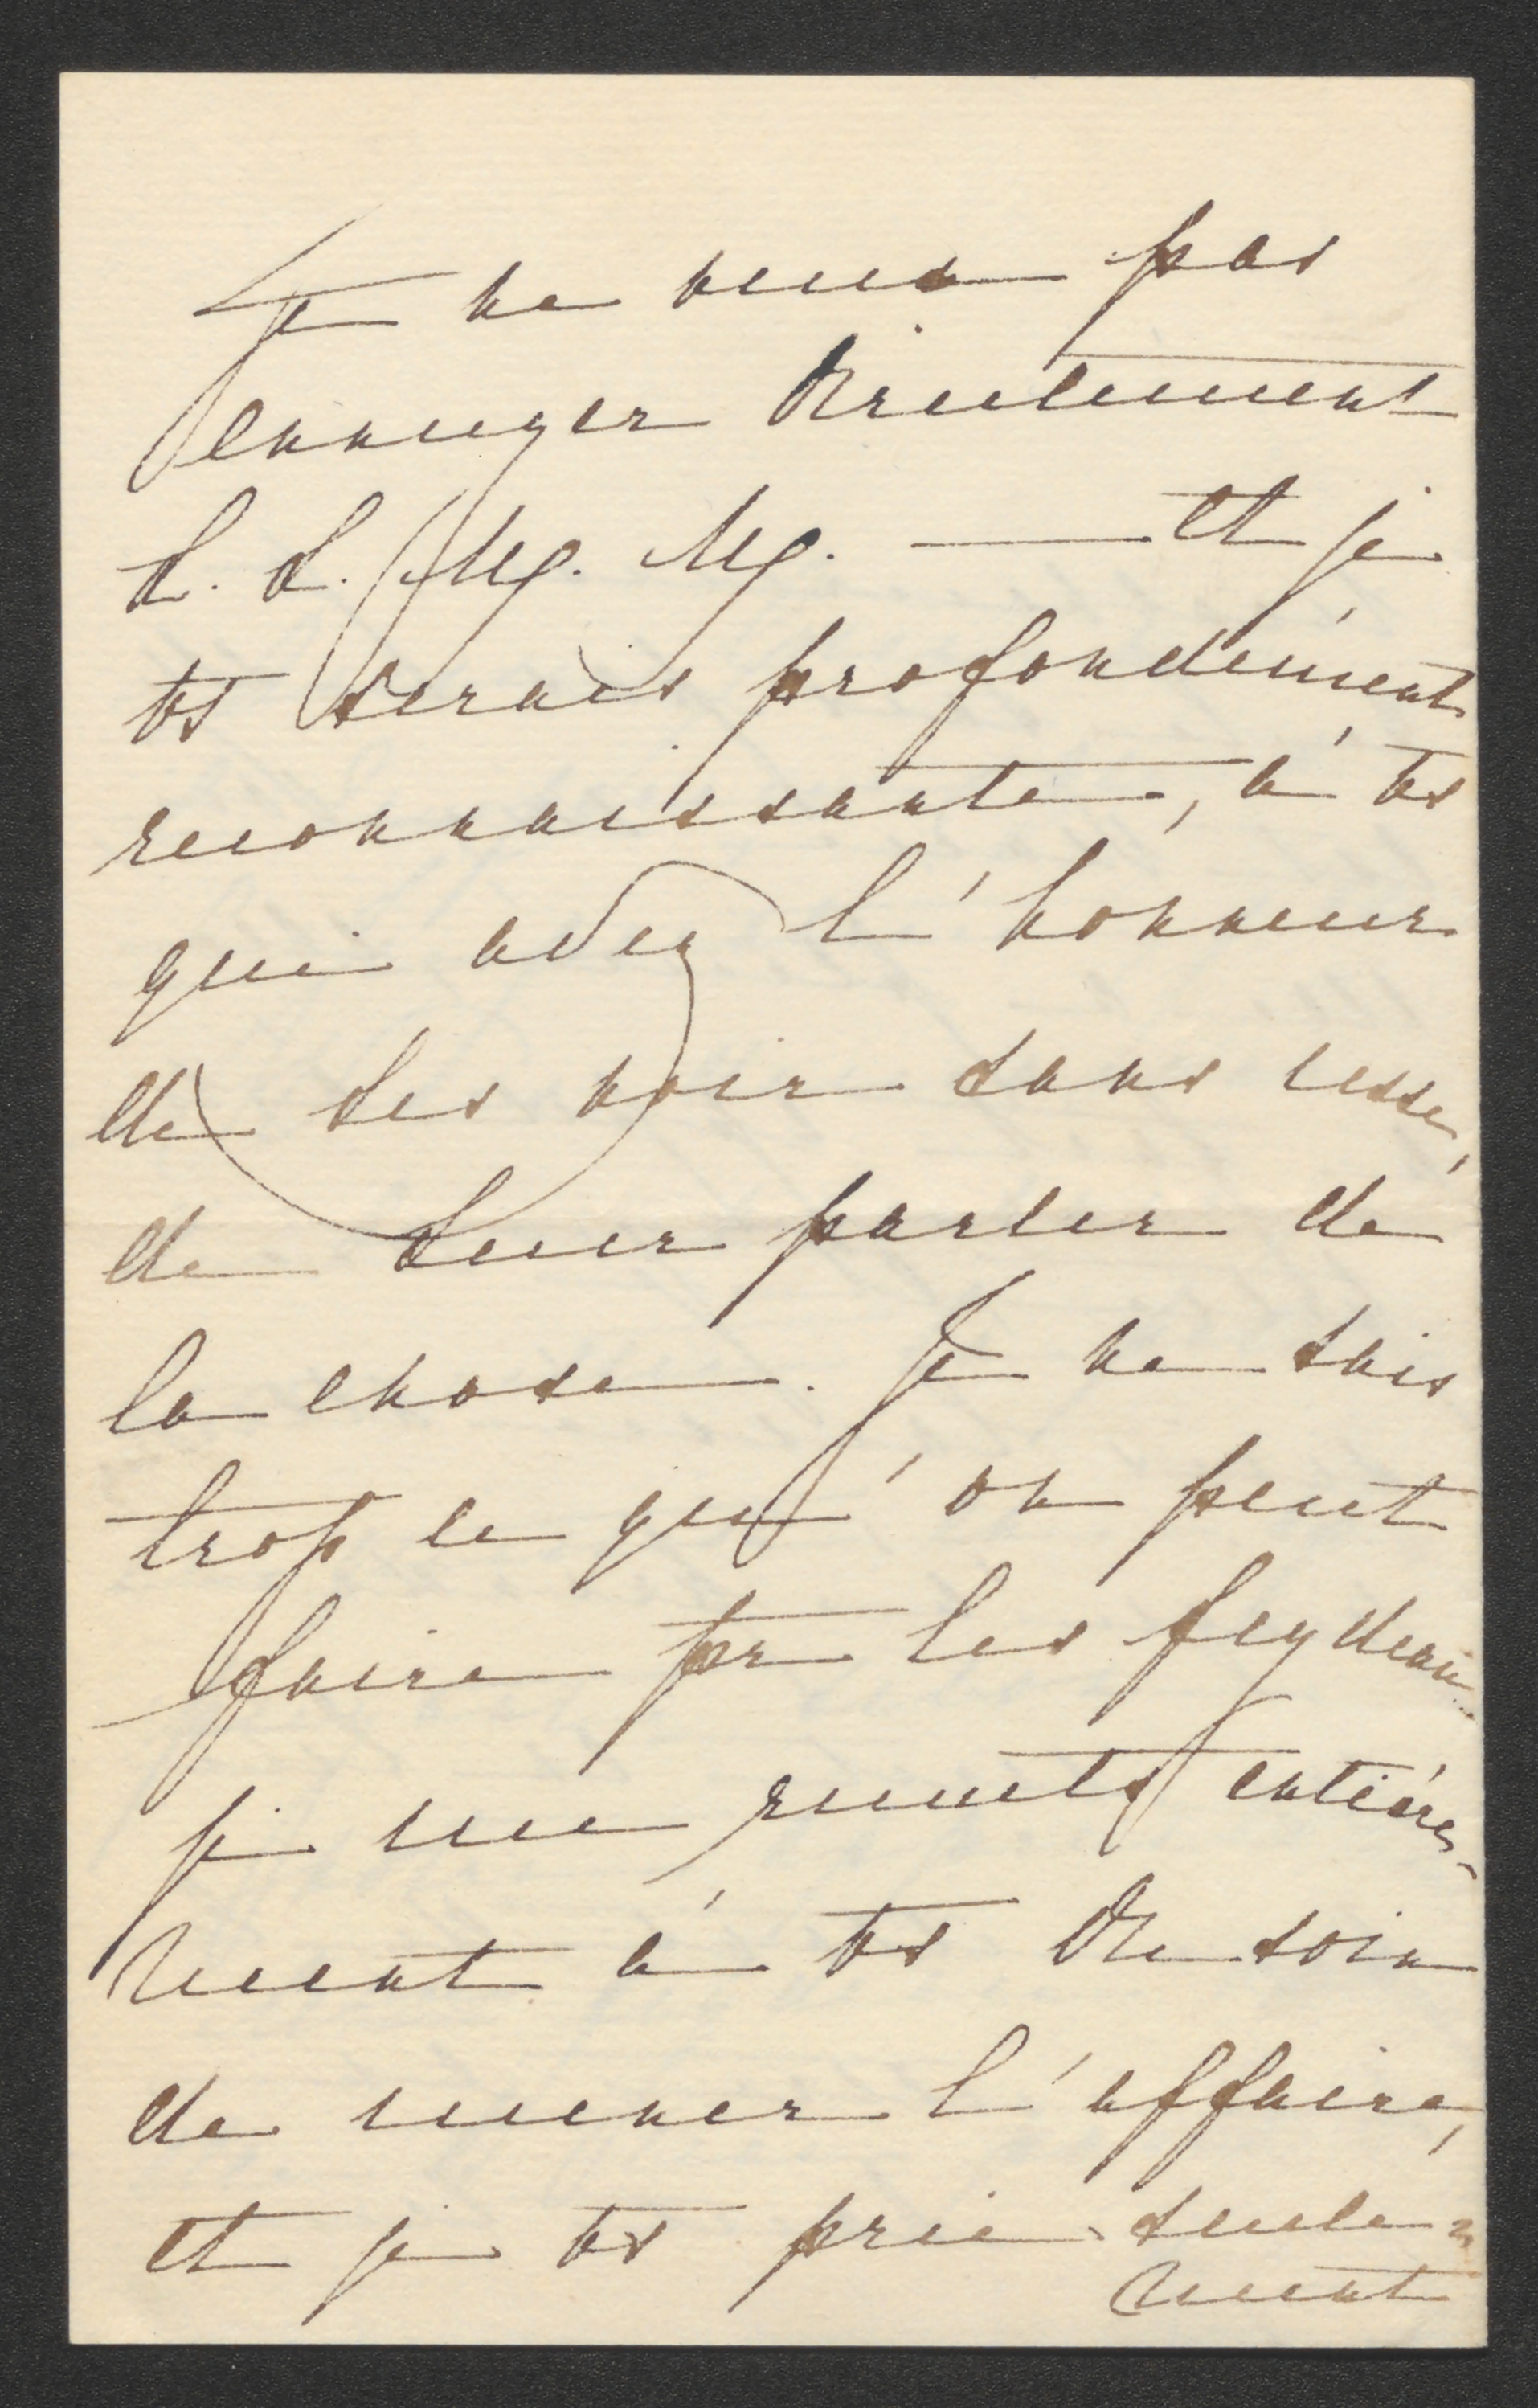 Je ne veux pas
ennuyer directement
L. L. M. M. — et je
vs serais profondément
reconnaissante, à vs
qui avez l'honneur
de les voir sans cesse,
de leur parler de
la chose. Je ne sais
trop ce qu'on peut
faire pr les Feydeau..
je me remets entière-
ment à vs du soin
de mener l'affaire,
et je vs prie seule=
ment